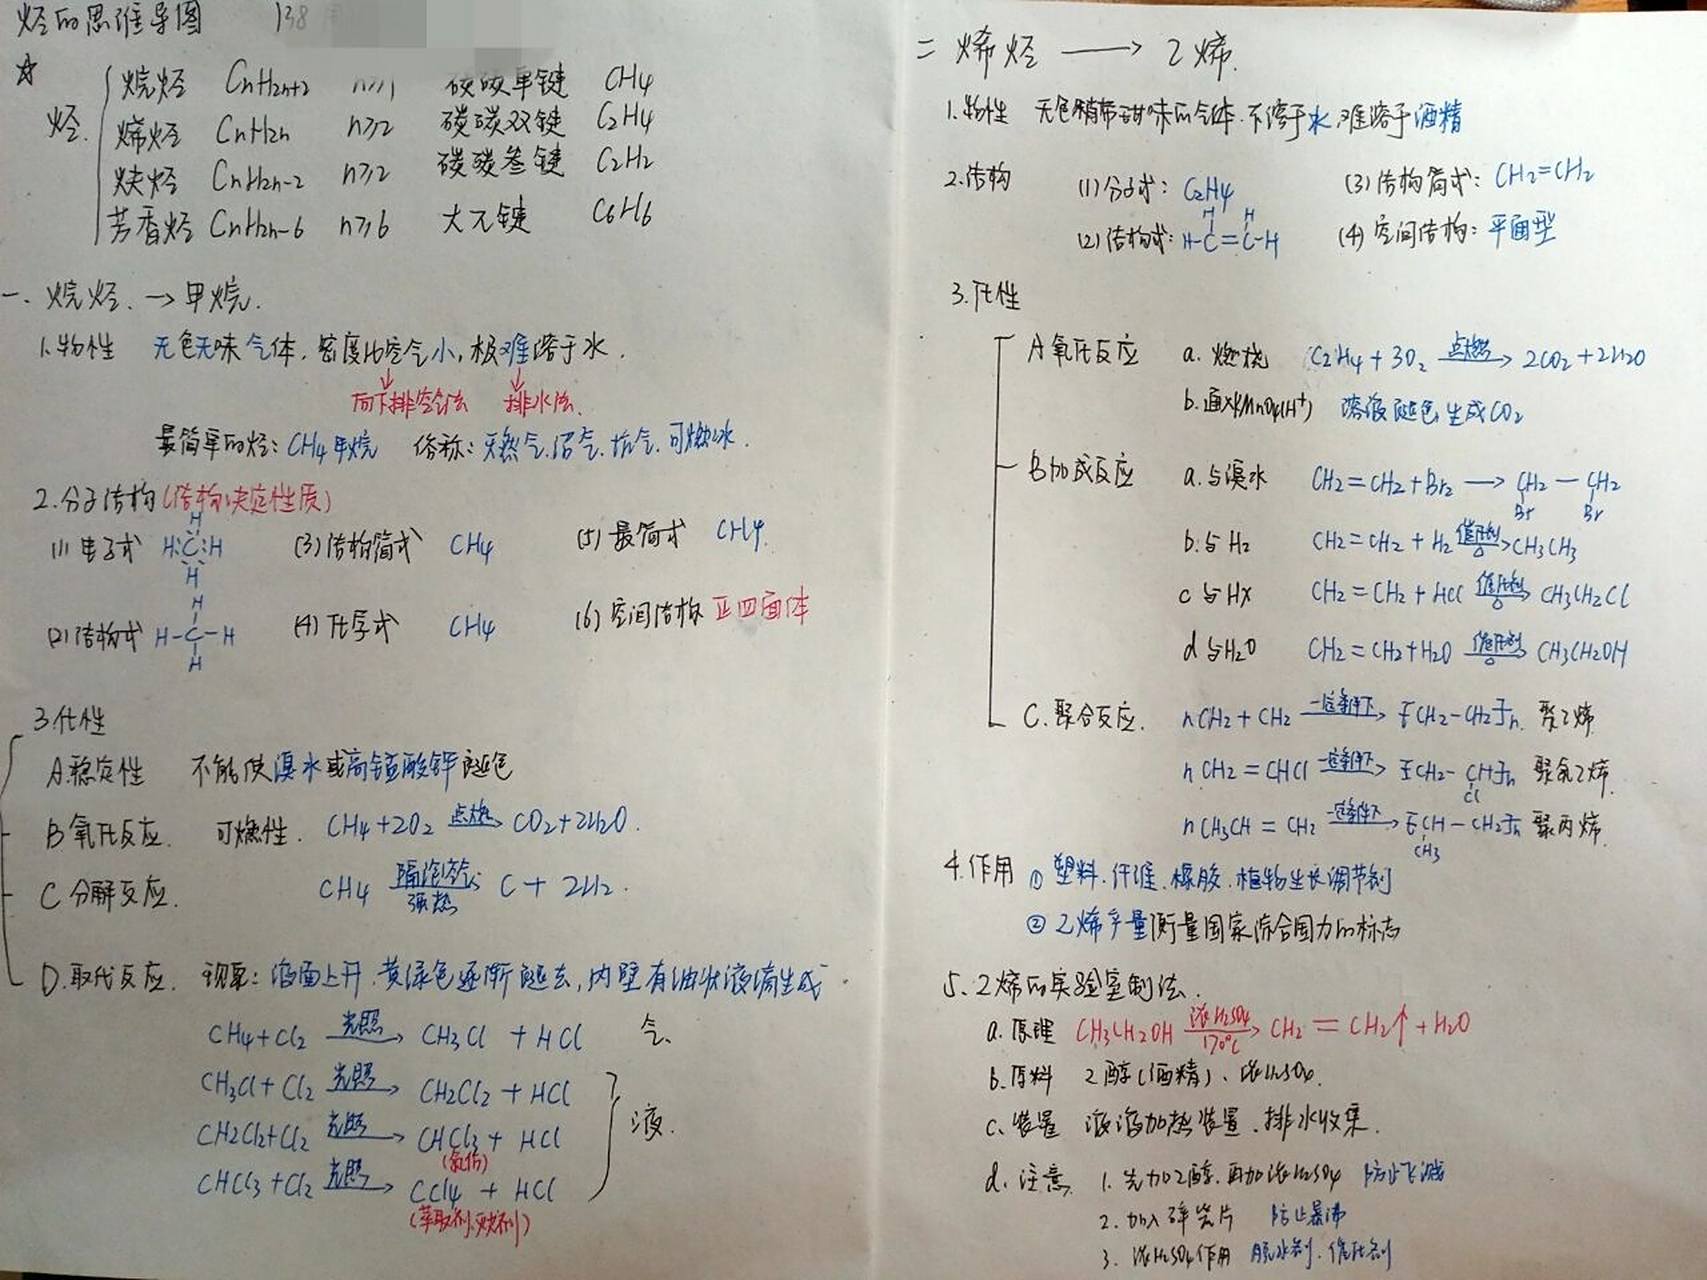 烃的思维导图 138
☆
烃.
烷烃 CnH2n+2 n≥1 碳碳单键 CH4
烯烃 CnH2n n≥2 碳碳双键 C2H4
炔烃 CnH2n-2 n≥2 碳碳叁键 C2H2
芳香烃 CnH2n-6 n≥6 大π键 C6H6
一、烷烃 → 甲烷.
1.物性 无色无味气体,密度比空气小,极难溶于水.
↓ ↓
向下排空气法 排水法.
最简单的烃: CH4 甲烷 俗称: 天然气.沼气.坑气.可燃冰.
2.分子结构(结构决定性质)
(1)电子式 H:C:H H H (3)结构简式 CH4 (5)最简式 CH4.
(2)结构式 H-C-H H H (4)化学式 CH4 (6)空间结构 正四面体
3.化性
A.稳定性 不能使溴水或高锰酸钾褪色
B氧化反应. 可燃性. CH4+2O2 点燃→ CO2+2H2O.
C分解反应. CH4 隔绝空气 强热→ C+2H2.
D.取代反应. 现象: 液面上升.黄绿色逐渐褪去,内壁有油状液滴生成.
CH4+Cl2 光照→ CH3Cl + HCl 气.
CH3Cl+Cl2 光照→ CH2Cl2 + HCl
CH2Cl2+Cl2 光照→ CHCl3 + HCl 液.
(氯仿)
CHCl3+Cl2 光照→ CCl4 + HCl
(萃取剂,灭火剂)
二 烯烃 → 乙烯.
1.物性 无色稍带甜味的气体.不溶于水,难溶于酒精
2.结构 (1)分子式: C2H4 (3)结构简式: CH2=CH2
(2)结构式: H-C=C-H H H (4)空间结构: 平面型
3.化性
A氧化反应 a.燃烧 C2H4+3O2 点燃→ 2CO2+2H2O
b.通入KMnO4(H+) 溶液褪色,生成CO2
B加成反应 a.与溴水 CH2=CH2+Br2 → CH2-CH2
Br Br
b.与H2 CH2=CH2+H2 催化剂 △→ CH3CH3
c与HX CH2=CH2+HCl 催化剂 △→ CH3CH2Cl
d与H2O CH2=CH2+H2O 催化剂 △→ CH3CH2OH
C.聚合反应. nCH2+CH2 一定条件下→ [CH2-CH2]n. 聚乙烯
nCH2=CHCl 一定条件下→ [CH2-CH]n 聚氯乙烯.
Cl
nCH3CH=CH2 一定条件下→ [CH-CH2]n 聚丙烯.
CH3
4.作用 ①塑料.纤维.橡胶.植物生长调节剂
②乙烯产量衡量国家综合国力的标志
5.乙烯的实验室制法.
a.原理 CH3CH2OH 浓H2SO4 170℃→ CH2=CH2↑+H2O
b.原料 乙醇(酒精)、浓H2SO4.
c.装置 液液加热装置.排水收集.
d.注意. 1.先加乙醇,再加浓H2SO4 防止飞溅
2.加入碎瓷片 防止暴沸
3.浓H2SO4作用 脱水剂.催化剂